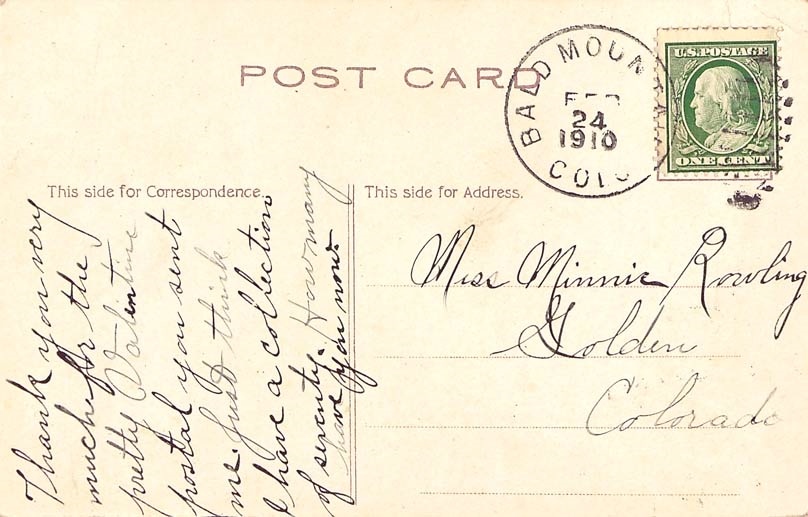 POST CARD
BALD MOUNT
FEB
24
1910
COLO
U.S. POSTAGE
ONE CENT
This side for Correspondence.
This side for Address.
Thank you very
much for the
pretty Valentine
postal you sent
me. Just think
I have a collection
of seventy. How many
have you now.
Miss Minnie Rowling
Golden
Colorado